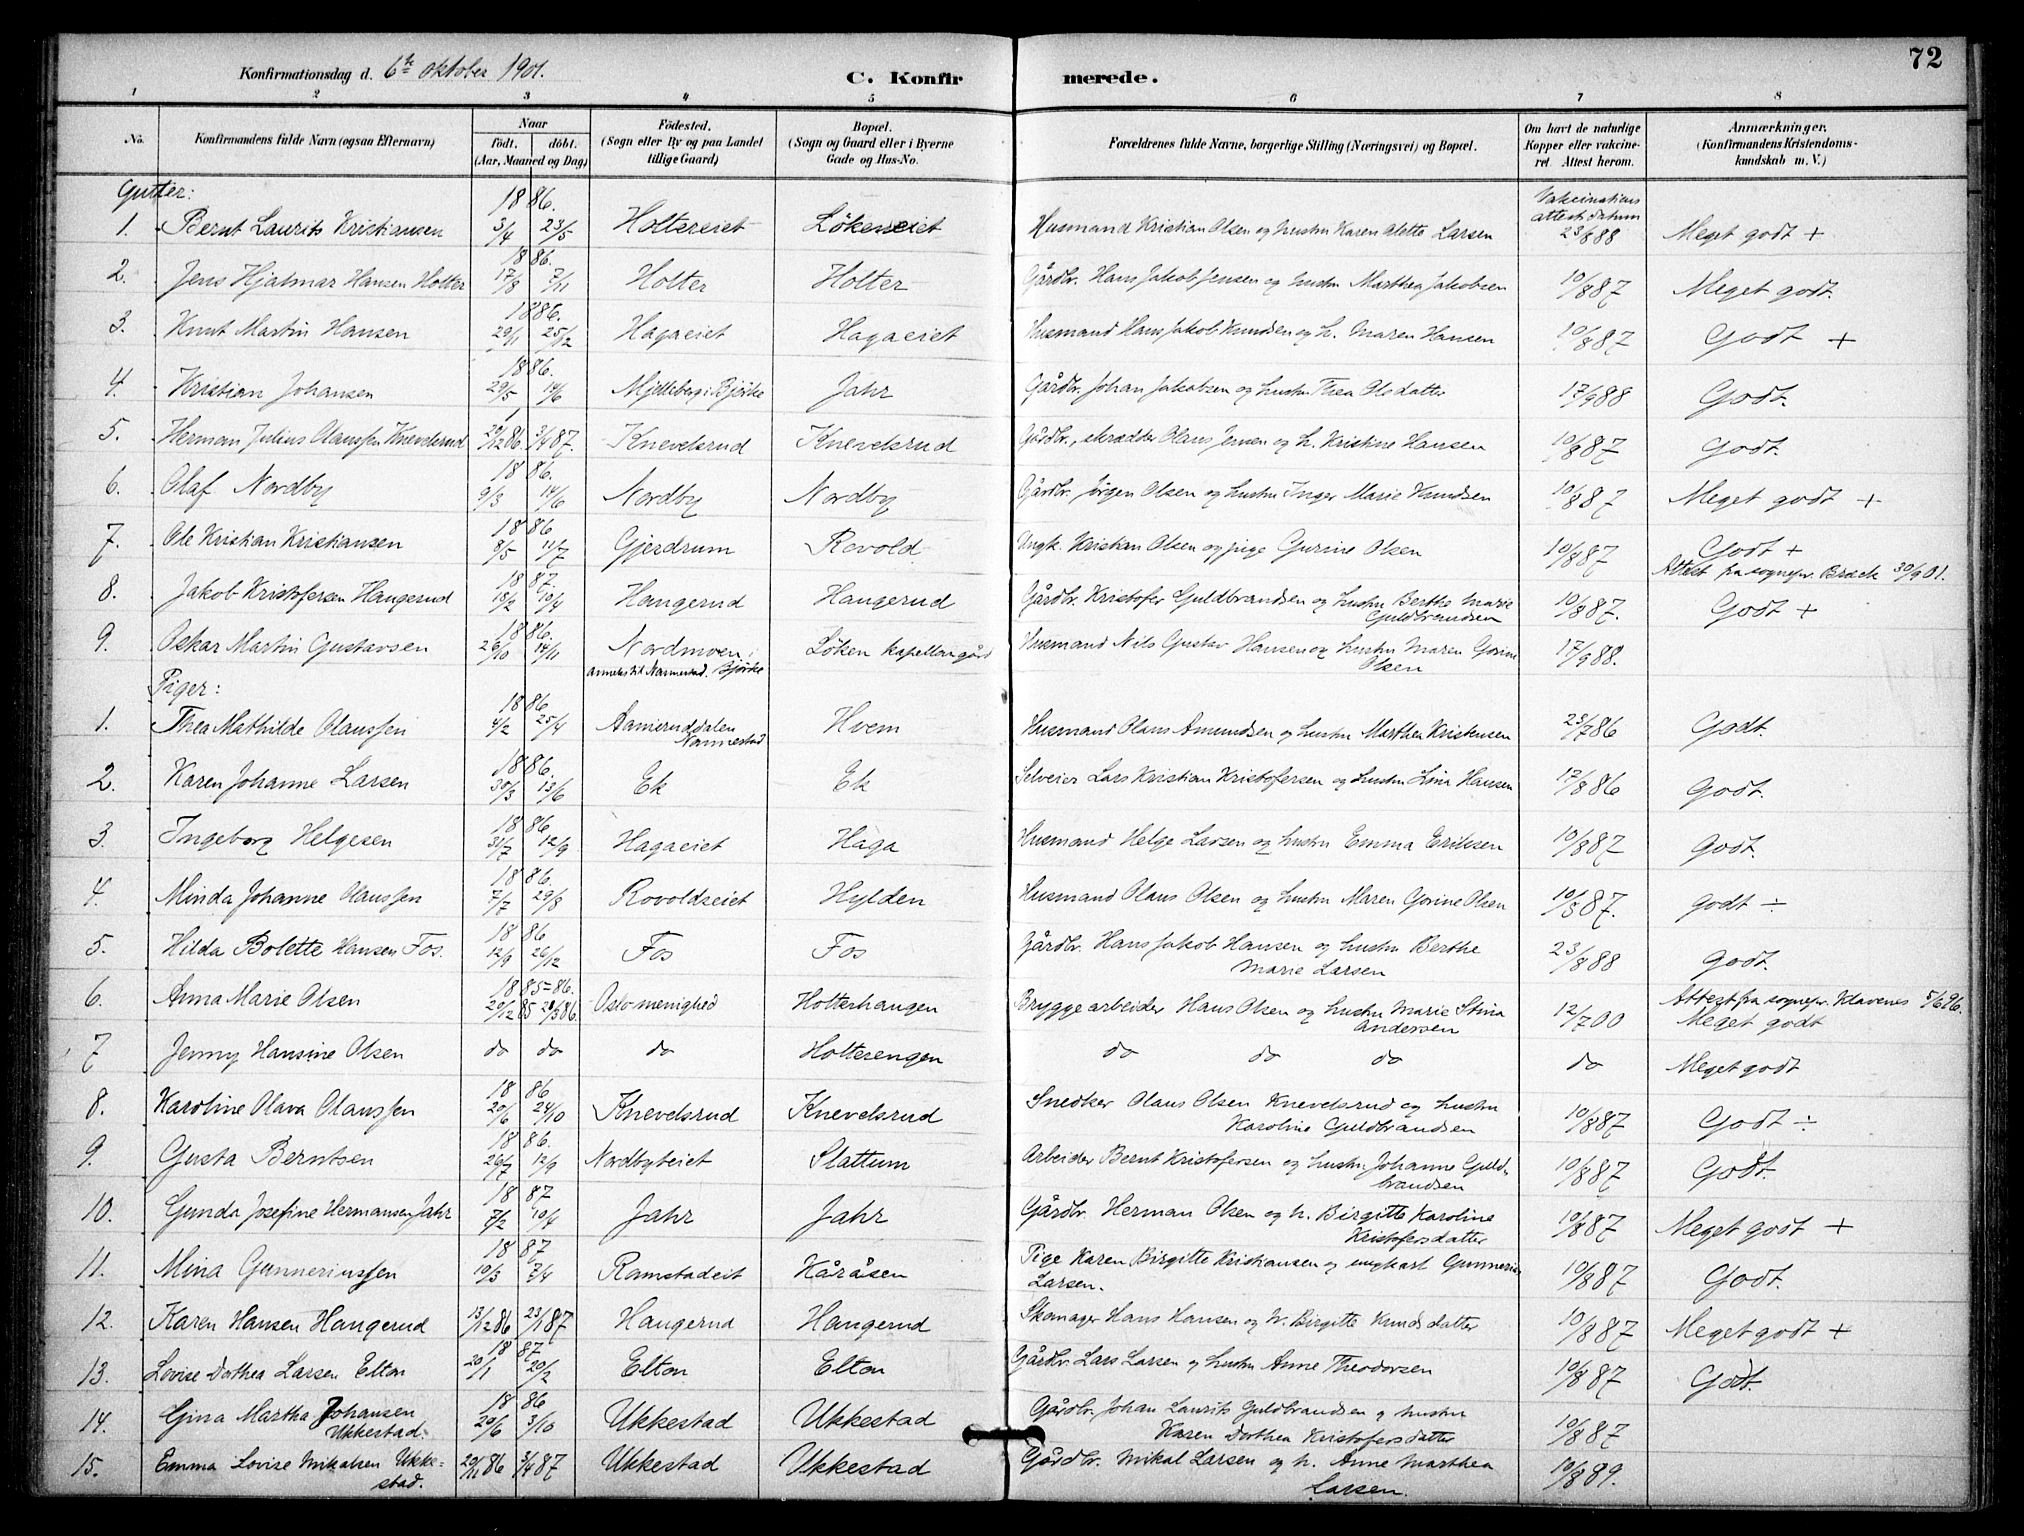 Konfirmationsdag d. 6te oktober 1901.
C. Konfirmerede.
72
1 2 3 4 5 6 7 8
No.
Konfirmandens fulde Navn (ogsaa Efternavn)
Naar
født. døbt.
(Aar, Maaned og Dag)
Födested.
(Sogn eller By og paa Landet
tillige Gaard)
Bopæl.
(Sogn og Gaard eller i Byerne
Gade og Hus-No.
Forældrenes fulde Navne, borgerlige Stilling (Næringsvei) og Bopæl.
Om havt de naturlige
Kopper eller vakcine-
ret. Attest herom.
Anmærkninger.
(Konfirmandens Kristendoms-
kundskab m. V.)
Gutter:
Vakcinations
attest datum
1. Bernt Laurits Kristiansen 1886. 3/4 23/5 Holtereiet Lökeneiet Husmand Kristian Olsen og hustru Karen Alette Larsen 23/888 Meget godt +
2. Jens Hjalmar Hansen Holter 1886. 17/8 7/11 Holter Holter Gårdbr. Hans Jakob Jensen og hustru Marthea Jakobsen 10/887 Meget godt.
3. Knut Martin Hansen 1886. 29/11 25/12 Hagaeiet Hagaeiet Husmand Hans Jakob Knudsen og h. Maren Hansen 10/887 Godt +
4. Kristian Johansen 1886. 29/5 14/6 Mjelleberg i Bjerke Jahr Gårdbr. Johan Jakobsen og hustru Thea Olsdatter 17/988 Godt.
5. Herman Julius Olaussen Knevelsrud 20/1286. 3/487. Knevelsrud Knevelsrud Gårdbr., skrædder Olaus Jensen og h. Kristine Hansen 10/887 Godt.
6. Olaf Nordby 1886. 9/3 14/6 Nordby Nordby Gårdbr. Jörgen Olsen og hustru Inger Marie Knudsen 10/887 Meget godt +
7. Ole Kristian Kristiansen 1886 8/5 11/7 Gjerdrum Rovold Ungk. Kristian Olsen og pige Gurine Olsen 10/887 Godt +
Attest fra sognepr. Brock 30/901.
8. Jakob Kristofersen Haugerud 1887. 18/2 10/4 Haugerud Haugerud Gårdbr. Kristofer Guldbrandsen og hustru Berthe Marie
Guldbrandsen 10/887. Godt +
9. Oskar Martin Gustavsen 1886. 26/10 14/11 Nordmoen i
annekstil Nannestad. Bjerke Löken kapellangård Husmand Nils Gustav Hansen og hustru Maren Gorine
Olsen 17/988.
Piger:
1. Thea Mathilde Olaussen 1886 4/2 25/4 Aameruddalen
Nannestad Hvem Husmand Olaus Amundsen og hustru Marthea Kristiansen 23/786 Godt.
2. Karen Johanne Larsen 1886. 30/3 13/6 Ek Ek Selveier Lars Kristian Kristofersen og hustru Lina Hansen 17/886 Godt.
3. Ingeborg Helgesen 1886 31/7 12/9 Hagaeiet Haga Husmand Helge Larsen og hustru Emma Eriksen 10/887 Godt.
4. Minda Johanne Olaussen 1886. 7/7 29/8 Rovoldseiet Hylden Husmand Olaus Olsen og hustru Maren Gorine Olsen 10/587. godt ÷
5. Hilda Bolette Hansen Fos. 1886 12/9 26/12 Fos Fos Gårdbr. Hans Jakob Hansen og hustru Berthe
Marie Larsen 23/888 godt.
6. Anna Marie Olsen 1885-86. 20/1285 28/386. Oslo menighed Holterhaugen Bryggearbeider Hans Olsen og hustru Marie Stina
Andersen 12/700 Attest fra sognepr. Klavenes 5/696.
Meget godt
7 Jenny Hansine Olsen do do do Holterengen do do do do Meget godt
8. Karoline Olava Olaussen 1886 20/6 24/10 Knevelsrud Knevelsrud Snedker Olaus Olsen Knevelsrud og hustru
Karoline Guldbrandsen 10/887 Godt ÷
9. Gusta Berntsen 1886. 26/7 12/9 Nordbyeiet Slattum Arbeider Bernt Kristofersen og hustru Johanne Guld-
brandsen 10/887 Godt.
10. Gunda Josefine Hermansen Jahr 1887 7/2 10/4 Jahr Jahr Gårdbr. Herman Olsen og h. Birgitte Karoline
Kristofersdatter 10/887 Meget godt +
11. Mina Gunneriussen 1887 10/3 7/4 Ramstadeit Kåråsen Pige Karen Birgitte Kristiansen og ungkarl Gunnerius
Larsen. 10/887 Godt.
12. Karen Hansen Haugerud 13/1286 23/187 Haugerud Haugerud Skomager Hans Hansen og h. Birgitte Knudsdatter 10/887 Meget godt +
13. Lovise Dorthea Larsen Elton 1887 20/1 20/2 Elton Elton Gårdbr. Lars Larsen og hustru Anne Theodorsen 10/887 Godt.
14. Gina Martha Johansen
Ukkestad. 1886 20/6 3/10 Ukkestad Ukkestad Gårdbr. Johan Laurits Guldbrandsen og hustru
Karen Dorthea Kristofersdatter 10/887
15. Emma Lovise Mikalsen Ukke-
stad. 20/1186 3/487 Ukkestad Ukkestad Gårdbr. Mikal Larsen og h. Anne Marthea
Larsen. 10/889.